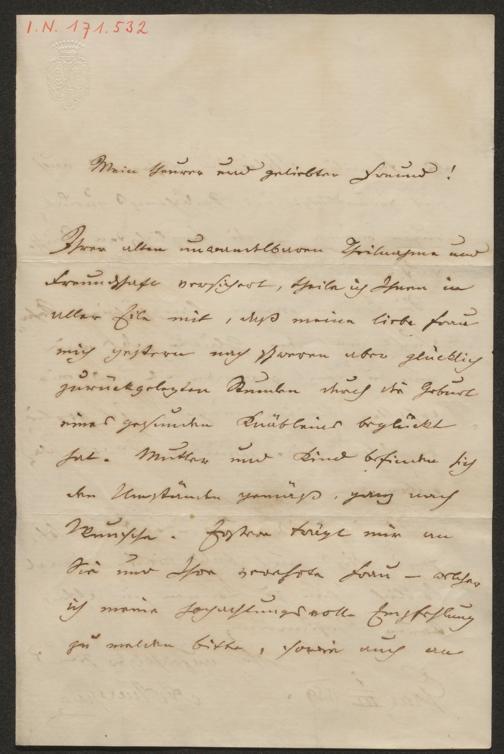 I.N. 171.532
Mein theurer und geliebter Freund!
Ihrer alten unwandelbaren Theilnahme und
Freundschaft versichert, theile ich Ihnen in
aller Eile mit, daß meine liebe Frau
mich gestern nach schweren aber glücklich
zurückgelegten Stunden durch die Geburt
eines gesunden Knäbleins beglückt
hat. Mutter und Kind befinden sich
den Umständen gemäß, ganz nach
Wunsche. Erstere trägt mir an
Sie und Ihre verehrte Frau – welcher
ich meine hochachtungsvolle Empfehlung
zu melden bitte, sowie auch an